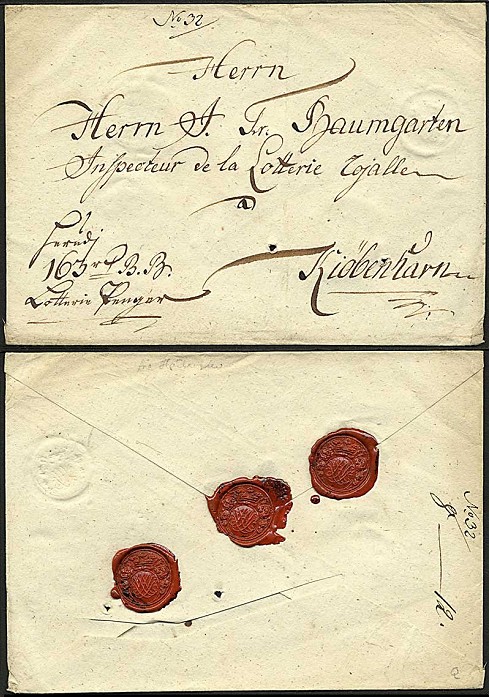 No. 32
Herrn
Herrn J. Fr. Baumgarten
Inspecteur de la Lotterie
a
Kiøbenhavn
herudj
163 rd B.B.
Lotterie Penger
No. 32